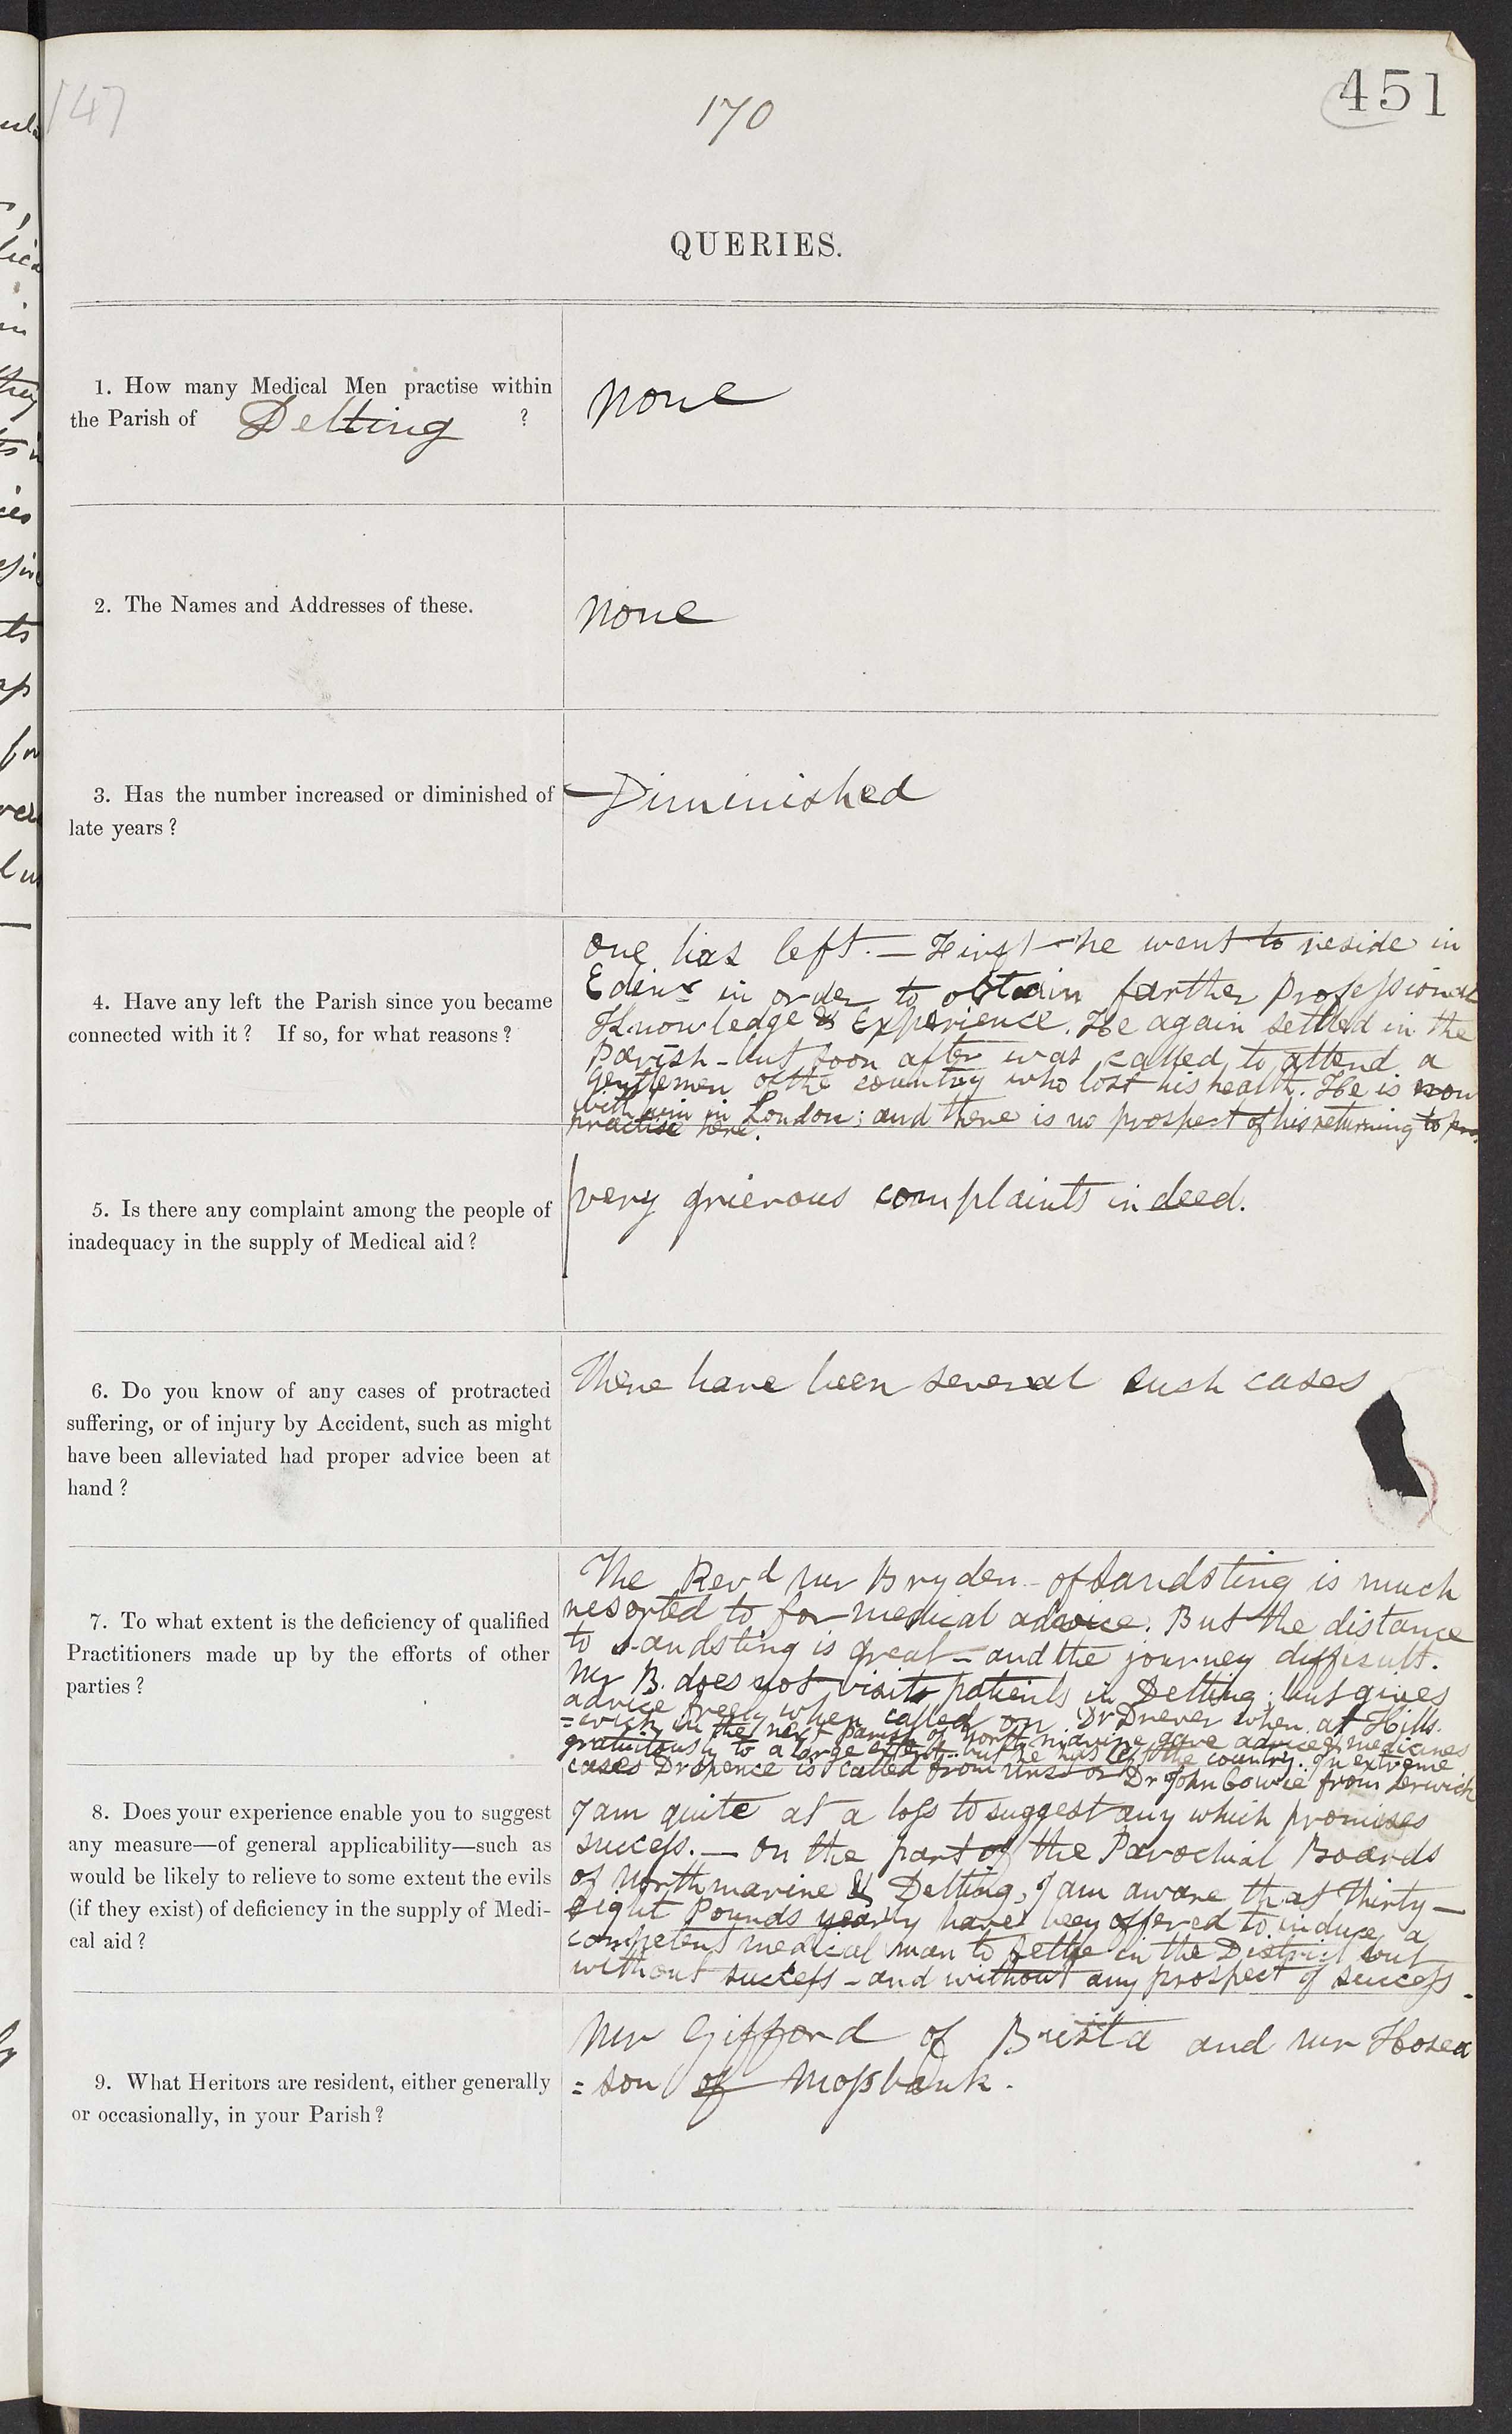 147
170
451
QUERIES.
1. How many Medical Men practise within
the Parish of Delting ?
None
2. The Names and Addresses of these.
None
3. Has the number increased or diminished of
late years?
Diminished
4. Have any left the Parish since you became
connected with it? If so, for what reasons?
One has left. — First he went to reside in
Edinr in order to obtain farther Professional
Knowledge & Experience. He again settled in the
Parish - but soon after was called to attend a
Gentlemen of the country who lost his health. He is now
with him in London; and there is no prospect of his returning to
practise here.
5. Is there any complaint among the people of
inadequacy in the supply of Medical aid?
very grievous complaints indeed.
6. Do you know of any cases of protracted
suffering, or of injury by Accident, such as might
have been alleviated had proper advice been at
hand?
There have been several such cases
7. To what extent is the deficiency of qualified
Practitioners made up by the efforts of other
parties?
The Revd Mr Bryden - of Sandsting is much
resorted to for medical advice. But the distance
to Sandsting is great - and the journey difficult.
Mr B. does not visit patients in Delting; but gives
advice freely when called on. Dr Drever when at Hills
=wick in the next parish of Northmavine gave advice & medicines
gratuitously to a large extent - but he has left the country. In extreme
cases Dr Spence is called from Unst or Dr John Cowie from Lerwick
8. Does your experience enable you to suggest
any measure—of general applicability—such as
would be likely to relieve to some extent the evils
(if they exist) of deficiency in the supply of Medi-
cal aid?
I am quite at a loss to suggest any which promises
success. — On the part of the Parochial Boards
of Northmavine & Delting, I am aware that Thirty—
Eight Pounds yearly have been offered to induce a
competent medical man to settle in the District but
without success - and without any prospect of success.
9. What Heritors are resident, either generally
or occasionally, in your Parish?
Mr Gifford of Busta and Mr Hosea
=son of Mossbank.